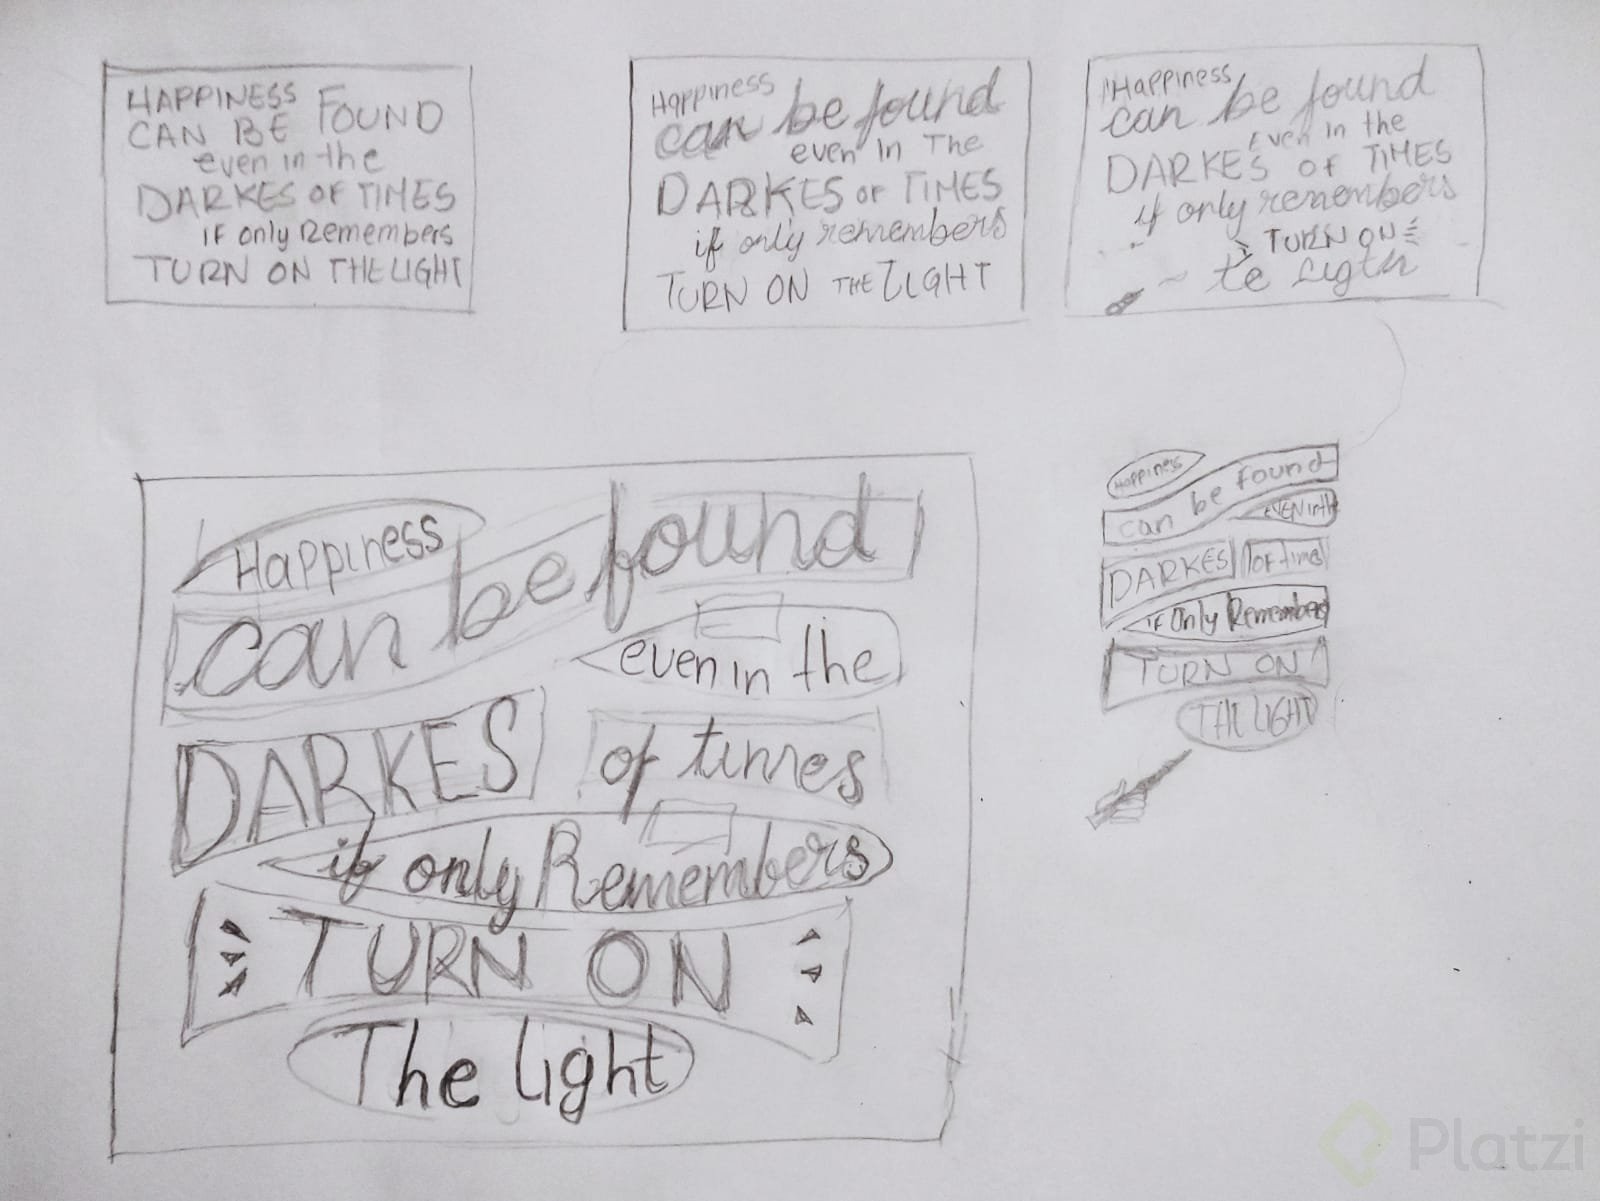 HAPPINESS
CAN BE FOUND
even in the
DARKES OF TIMES
IF only Remembers
TURN ON THE LIGHT
Happiness
can be found
even in The
DARKES OF TIMES
if only remembers
TURN ON THE LIGHT
Happiness
can be found
Even in the
DARKES OF TIMES
if only remembers
TURN ON
te Ligth
Happiness
can be found
even in the
DARKES of times
if only Remembers
TURN ON
The light
Happiness
can be found
EVEN in th
DARKES OF Time
IF Only Remembers
TURN ON
THE LIGHT
Platzi